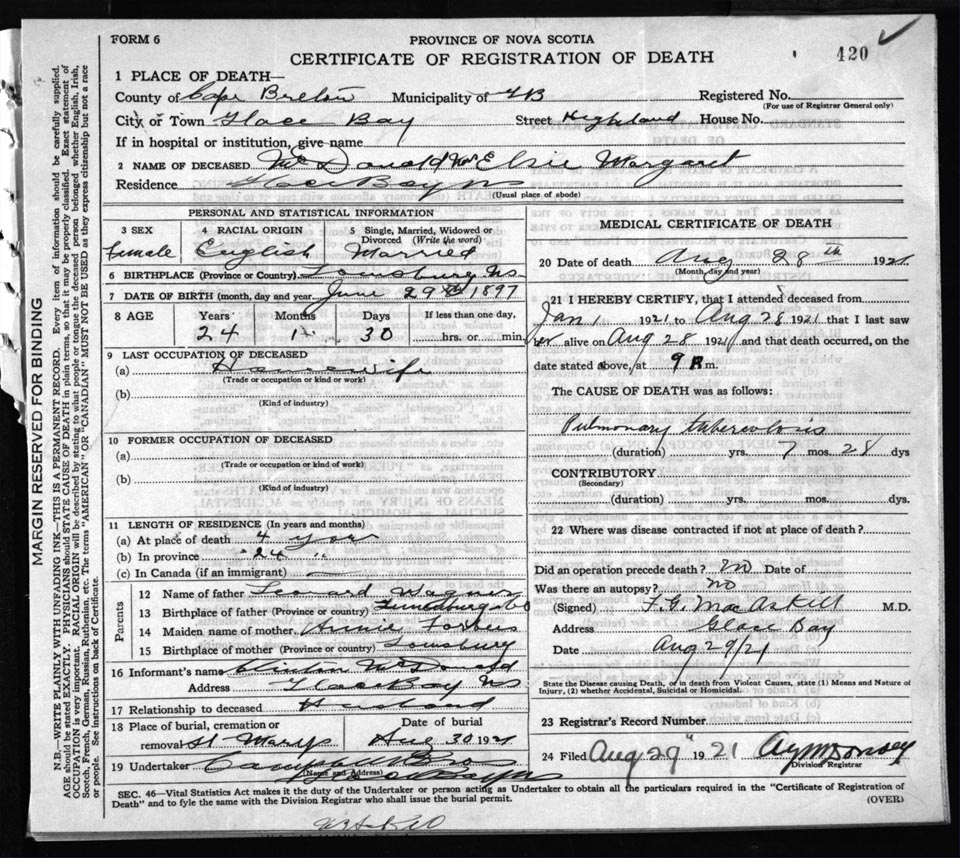 FORM 6
PROVINCE OF NOVA SCOTIA
CERTIFICATE OF REGISTRATION OF DEATH
420
1 PLACE OF DEATH—
County of Cape Breton Municipality of GB Registered No.
(For use of Registrar General only)
City or Town Glace Bay Street Highland House No.
If in hospital or institution, give name
2 NAME OF DECEASED McDonald Mrs Elsie Margaret
Residence Glace Bay NS
(Usual place of abode)
PERSONAL AND STATISTICAL INFORMATION
3 SEX 4 RACIAL ORIGIN 5 Single, Married, Widowed or
Divorced (Write the word)
Female English Married
6 BIRTHPLACE (Province or Country) Louisburg NS
7 DATE OF BIRTH (month, day and year) June 29th 1897
8 AGE Years Months Days If less than one day,
24 1 30 hrs. or min.
9 LAST OCCUPATION OF DECEASED
(a) Housewife
(Trade or occupation or kind or work)
(b)
(Kind of industry)
10 FORMER OCCUPATION OF DECEASED
(a)
(Trade or occupation or kind of work)
(b)
(Kind of industry)
11 LENGTH OF RESIDENCE (In years and months)
(a) At place of death 4 years
(b) In province 24 "
(c) In Canada (if an immigrant) —
Parents
12 Name of father Leonard Wagner
13 Birthplace of father (Province or country) Lunenburg Co
14 Maiden name of mother Annie Forbes
15 Birthplace of mother (Province or country) Louisburg
16 Informant's name Clinton McDonald
Address Glace Bay NS
17 Relationship to deceased Husband
18 Place of burial, cremation or Date of burial
removal St Marys Aug 30 1921
19 Undertaker Campbell Bros
(Name and Address)
Glace Bay NS
MEDICAL CERTIFICATE OF DEATH
20 Date of death Aug 28th 1921
(Month, day and year)
21 I HEREBY CERTIFY, that I attended deceased from
Jan 1 1921 to Aug 28 1921 that I last saw
her alive on Aug 28 1921 and that death occurred, on the
date stated above, at 9 P. m.
The CAUSE OF DEATH was as follows:
Pulmonary tuberculosis
(duration) yrs. 7 mos. 28 dys
CONTRIBUTORY
(Secondary)
(duration) yrs. mos. dys.
22 Where was disease contracted if not at place of death?
Did an operation precede death? No Date of
Was there an autopsy? No
(Signed) F.G. MacAskill M.D.
Address Glace Bay
Date Aug 29/21
State the Disease causing Death, or in death from Violent Causes, state (1) Means and Nature of
Injury, (2) whether Accidental, Suicidal or Homicidal.
23 Registrar's Record Number
24 Filed Aug 29" 1921
Division Registrar
SEC. 46—Vital Statistics Act makes it the duty of the Undertaker or person acting as Undertaker to obtain all the particulars required in the "Certificate of Registration of
Death" and to fyle the same with the Division Registrar who shall issue the burial permit.
(OVER)
MARGIN RESERVED FOR BINDING
N.B.—WRITE PLAINLY WITH UNFADING INK—THIS IS A PERMANENT RECORD. Every item of information should be carefully supplied.
AGE should be stated EXACTLY. PHYSICIANS should STATE CAUSE OF DEATH in plain terms, so that it may be properly classified. Exact statement of
OCCUPATION is very important. RACIAL ORIGIN will be described by stating to what people or tongue the deceased person belonged whether English, Irish,
Scotch, French, German, Russian, Ruthenian, etc. The terms "AMERICAN" OR "CANADIAN" MUST NOT BE USED as they express citizenship but not a race
or people. See instructions on back of Certificate.